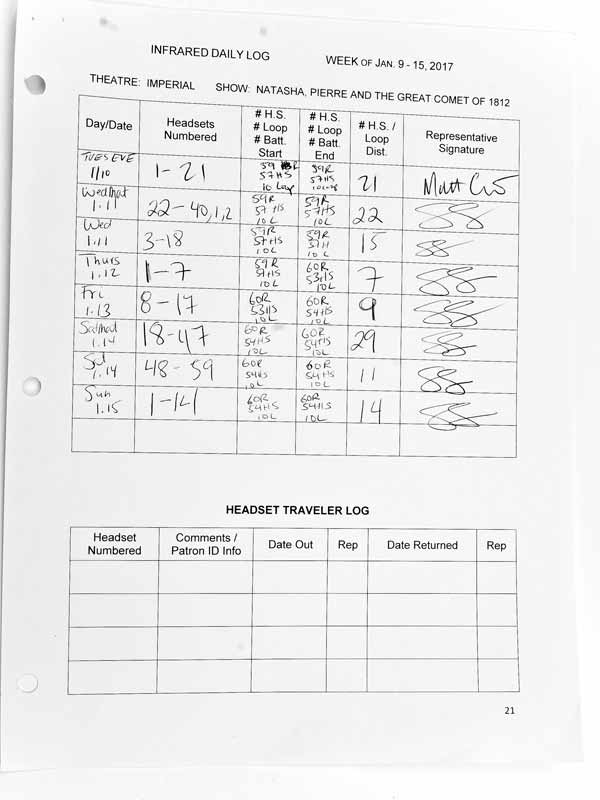 INFRARED DAILY LOG
WEEK OF JAN. 9 - 15, 2017
THEATRE: IMPERIAL SHOW: NATASHA, PIERRE AND THE GREAT COMET OF 1812
Day/Date
Headsets Numbered
# H.S. # Loop # Batt. Start
# H.S. # Loop # Batt. End
# H.S. / Loop Dist.
Representative Signature
TUES EVE 1/10
1-21
59 R 57HS 10 Loop
59R 57HS 10 Loop
21
Matt
Wed Mat 1.11
22-40,1,2
59R 57HS 10L
59R 57HS 10L
22
Wed 1.11
3-18
59R 57HS 10L
59R 57H 10L
15
Thurs 1.12
1-7
59R 57HS 10L
60R 53HS 10L
7
Fri 1.13
8-17
60R 53HS 10L
60R 54HS 10L
9
Sat Mat 1.14
18-47
60R 54HS 10L
60R 54HS 10L
29
Sat 1.14
48-59
60R 54HS 10L
60R 54HS 10L
11
Sun 1.15
1-14
60R 54HS 10L
60R 54HS 10L
14
HEADSET TRAVELER LOG
Headset Numbered
Comments / Patron ID Info
Date Out
Rep
Date Returned
Rep
21